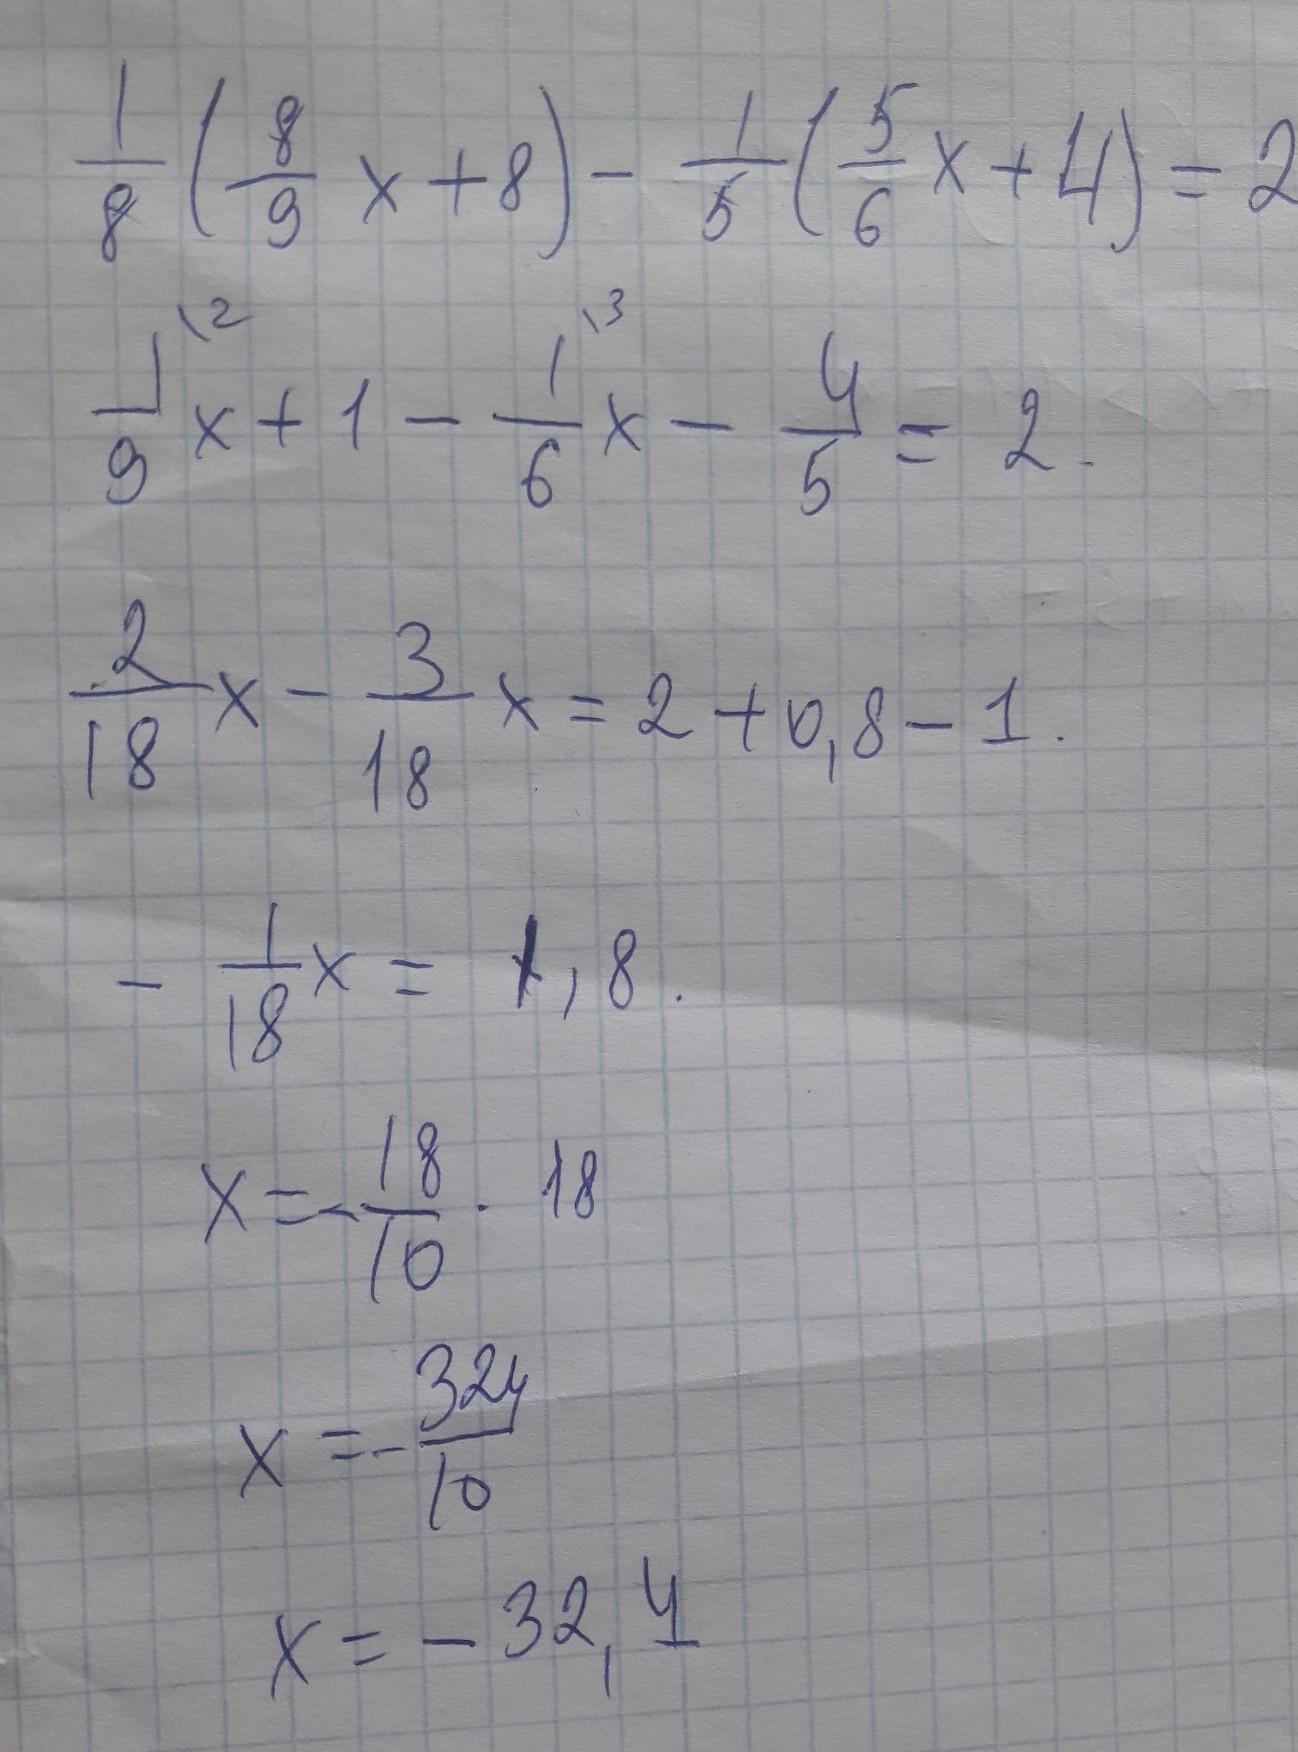 1/8 (8/9 x + 8) - 1/5 (5/6 x + 4) = 2
1/9 \2 x + 1 - 1/6 \3 x - 4/5 = 2.
2/18 x - 3/18 x = 2 + 0,8 - 1.
- 1/18 x = 1,8.
x = - 18/10 · 18
x = - 324/10
x = - 32,4